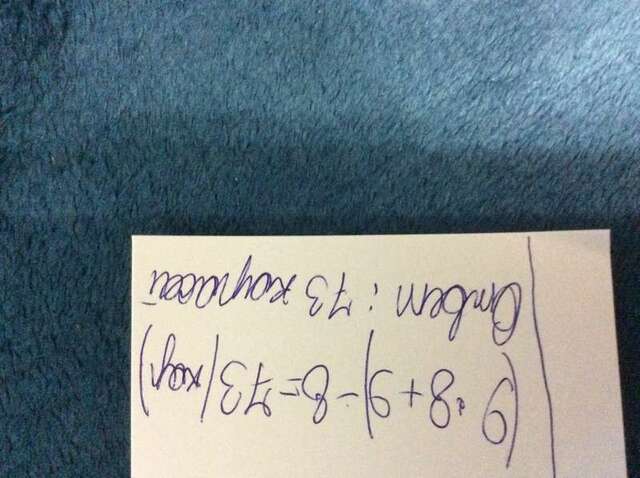 (9·8+9)-8=73(кар)
Ответ: 73 карасей